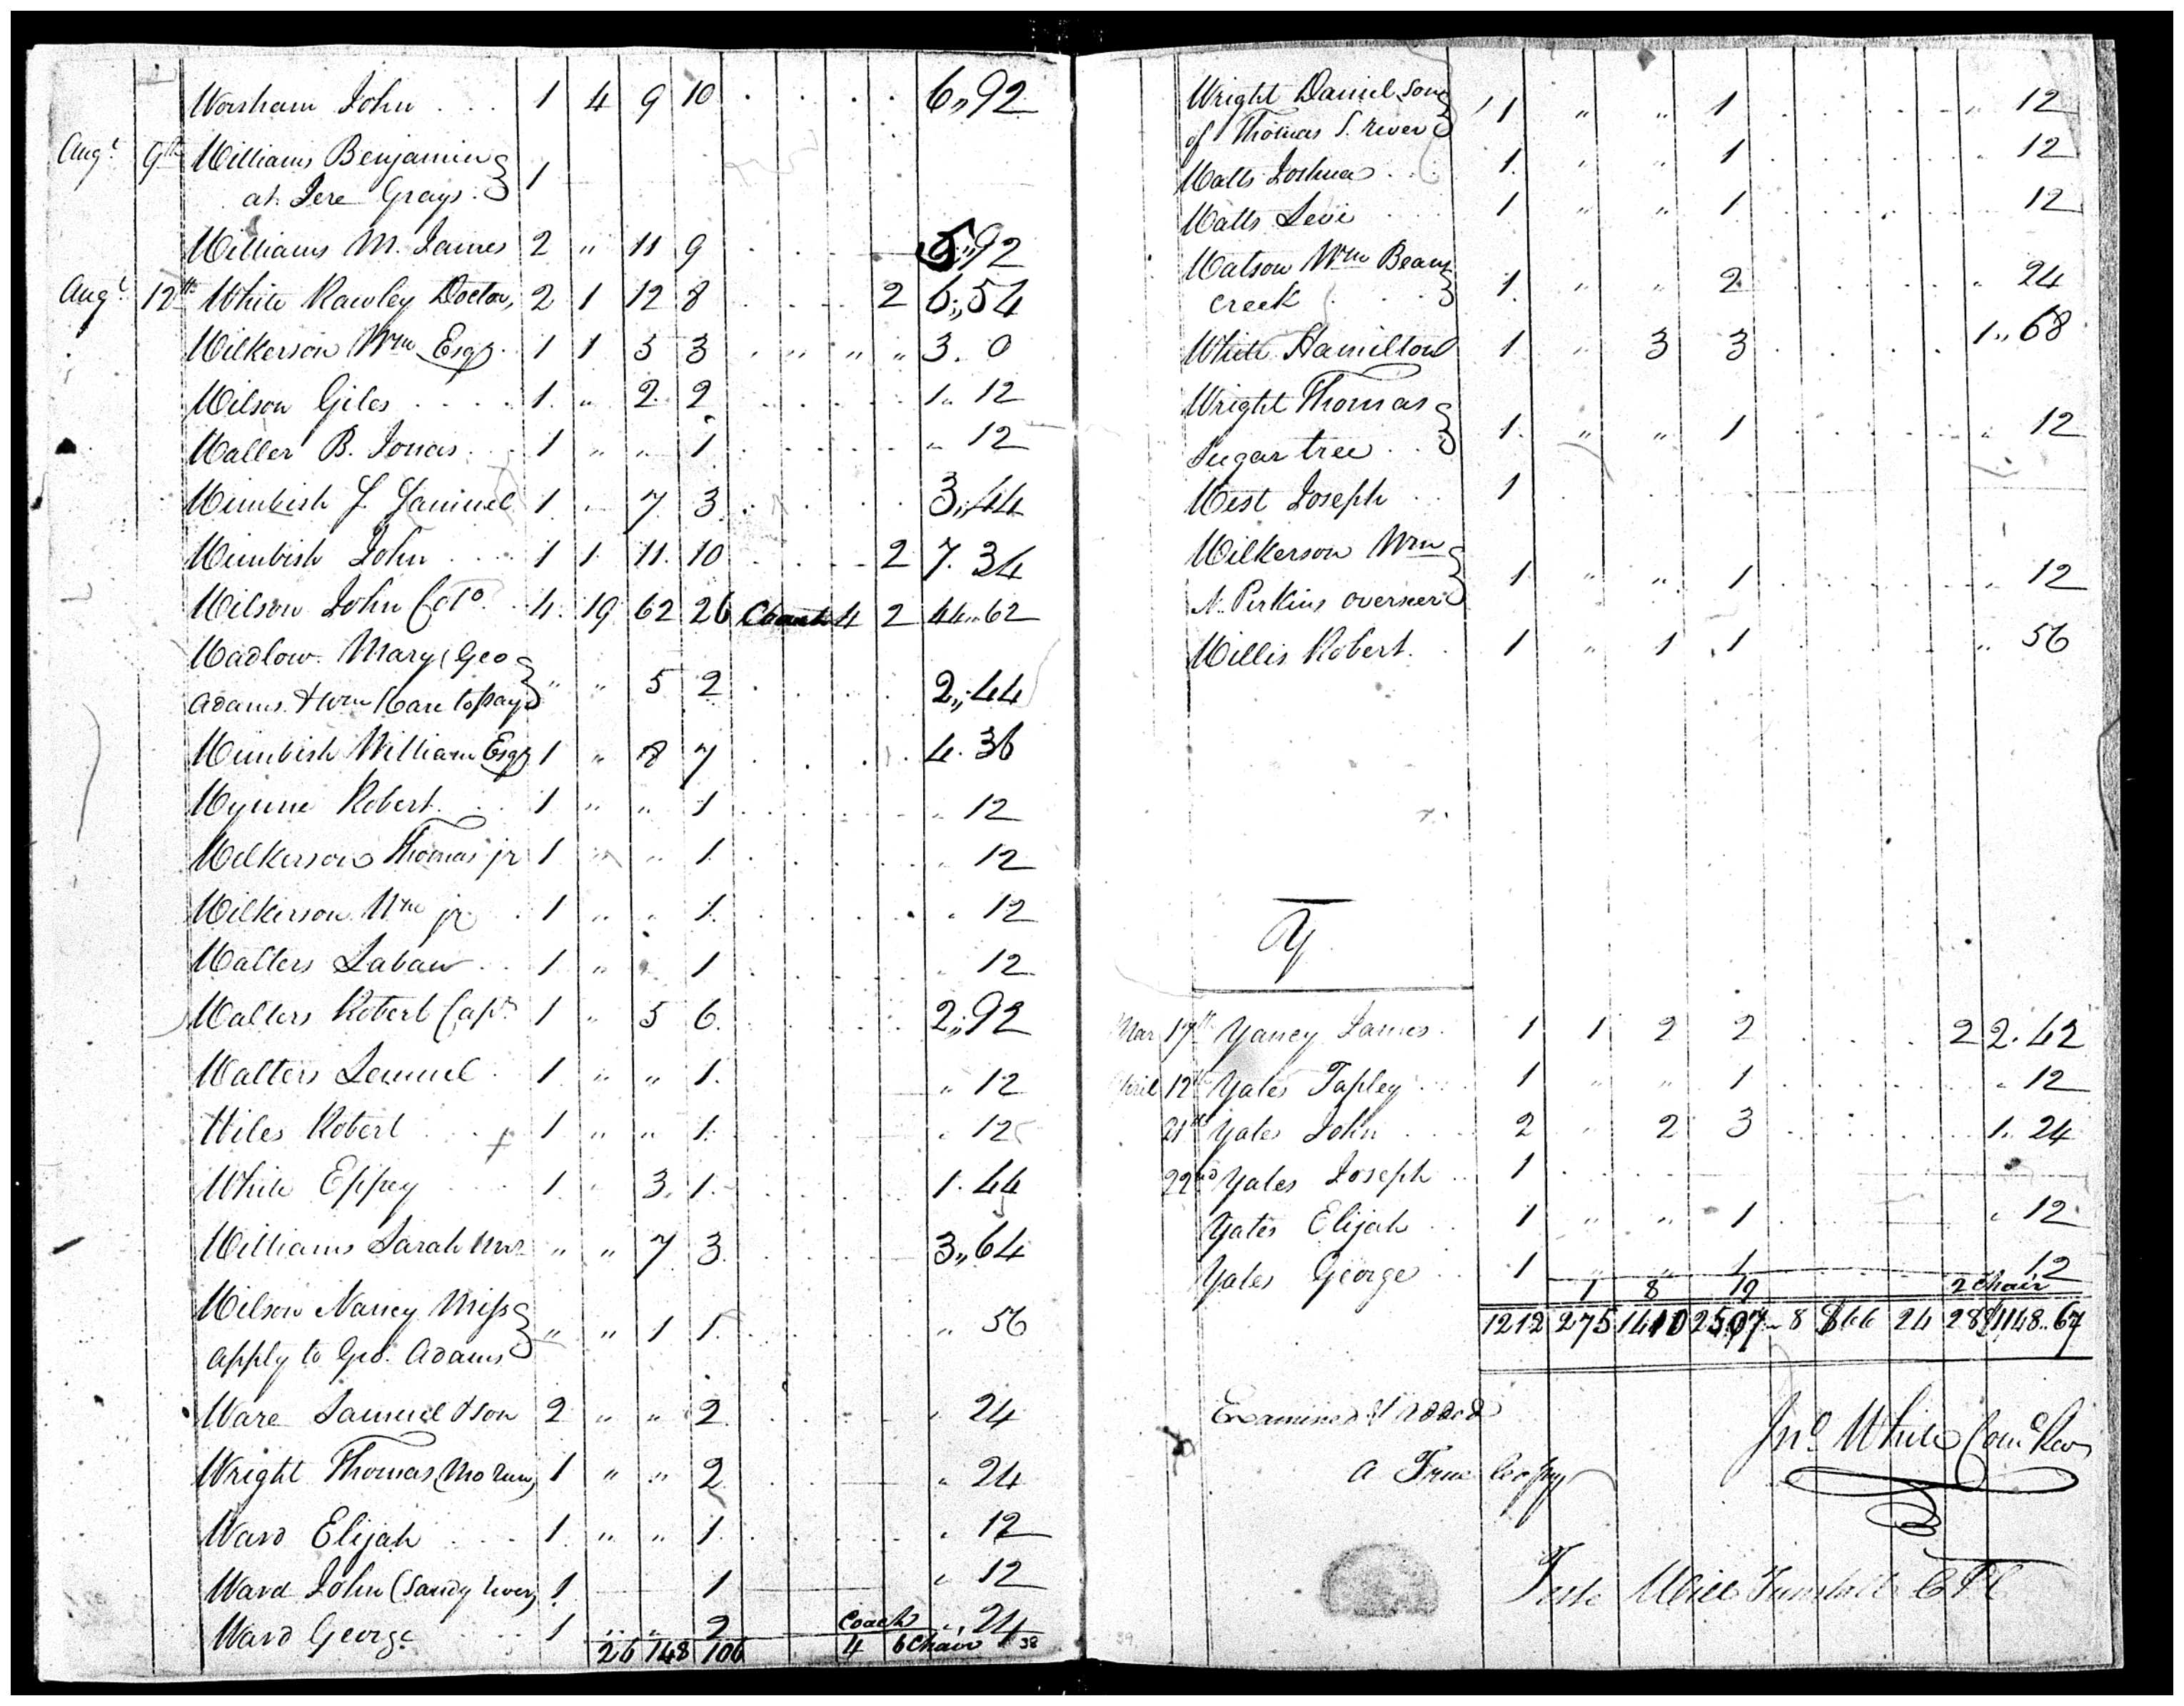 Worsham John . . . 1 4 9 10 . . . . 6,,92
Augt. 9th Williams Benjamin
at Jere Grays. 1
Williams M. James 2 ,, 11 9 . . . 5,,92
Augt. 12th White Rawley Doctor, 2 1 12 8 . . . 2 6,,54
Wilkerson Wm Esqr. 1 1 5 3 . ,, ,, ,, 3. 0
Wilson Giles . . . . 1. ,, 2. 2 1,, 12
Waller B. Jonas. 1 ,, ,, 1 ,, 12
Wimbish J. Samuel 1 ,, 7 3 3,,44
Wimbish John . . . 1 1 11. 10 2 7. 34
Wilson John Colo. 4. 19 62 26 4 2 44,,62
Wadlow Mary (Geo
Adams & Wm Ware to pay) ,, ,, 5 2 2,,44
Wimbish William Esqr. 1 ,, 8 7 4. 36
Wynne Robert. 1 ,, ,, 1 ,, 12
Wilkerson Thomas jr 1 ,, ,, 1 ,, 12
Wilkerson Wm jr 1 ,, ,, 1. ,, 12
Walters Laban 1 ,, ,, 1 ,, 12
Walters Robert Capt. 1 ,, 5 6 2,,92
Walters Lemuel 1 ,, ,, 1. ,, 12
Wiles Robert 1 ,, ,, 1. ,, 12
White Eppey 1 ,, 3. 1. 1. 44
Williams Sarah Mrs. ,, ,, 7 3 3,,64
Wilson Nancy Miss
apply to Geo. Adams ,, ,, 1 1 ,, 56
Ware Samuel & son 2 ,, ,, 2 ,, 24
Wright Thomas 1 ,, ,, 2 ,, 24
Ward Elijah 1 ,, ,, 1 ,, 12
Ward John (Sandy River) 1 1 ,, 12
Ward George 1 ,, ,, 2 Coach ,, 24
26 148 106 4 6 Chair 38
Wright Daniel son
of Thomas S. River 1 ,, ,, 1 ,, 12
Watts Joshua 1 ,, ,, 1 ,, 12
Watts Levi 1 ,, ,, 1 12
Watson Wm Beans
creek 1 ,, ,, 2 ,, 24
White Hamilton 1 ,, 3 3 1,,68
Wright Thomas
Sugar tree 1. ,, ,, 1 ,, 12
West Joseph 1
Wilkerson Wm
N. Perkins overseer 1 ,, ,, 1 ,, 12
Willis Robert. 1 ,, 1 1 ,, 56
Y
Mar 17th Yancy James. 1 1 2 2 2 2. 42
April 12th Yates Tapley 1 ,, ,, 1 ,, 12
21st Yates John 2 ,, 2 3 1,, 24
22nd Yates Joseph 1
Yates Elijah 1 ,, ,, 1 ,, 12
Yates George 1 ,, ,, 1 12
1 8 19 2 chair
1212 275 1410 2507 8 866 24 28 $1148..67
Examined & Added
Jno. White Com Rev
A True Copy
Teste Will Tunstall CPC
39